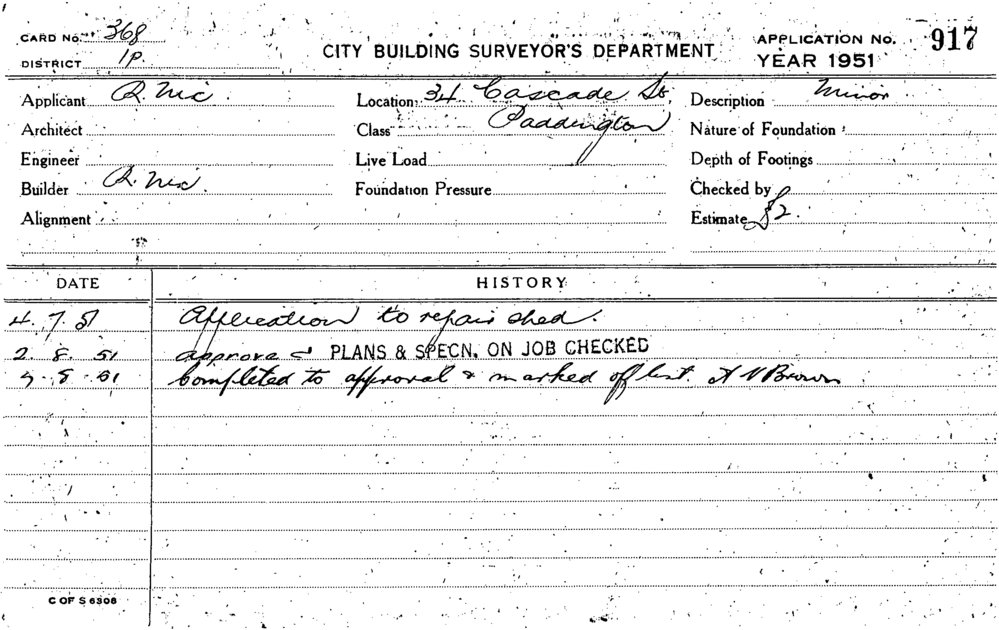 CARD No. 368
DISTRICT 1P.
CITY BUILDING SURVEYOR'S DEPARTMENT
APPLICATION No. 917
YEAR 1951
Applicant R. Nix
Location 34 Cascade St.
Description Minor
Architect
Class Paddington
Nature of Foundation
Engineer
Live Load
Depth of Footings
Builder R. Nix.
Foundation Pressure
Checked by
Alignment
Estimate £2.
DATE HISTORY
4. 7. 51 Application to repair shed.
2. 8. 51 approved PLANS & SPECN. ON JOB CHECKED
8 51 Completed to approval & marked off list. A V Brown
C OF S 6308